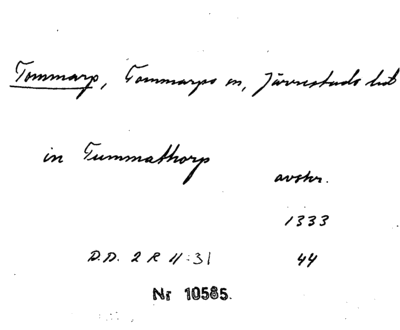 Tommarp, Tommarps sn, Järrestads hd
in Tummathorp
avskr.
1333
D.D. 2 R 11:31 44
Nr 10585.